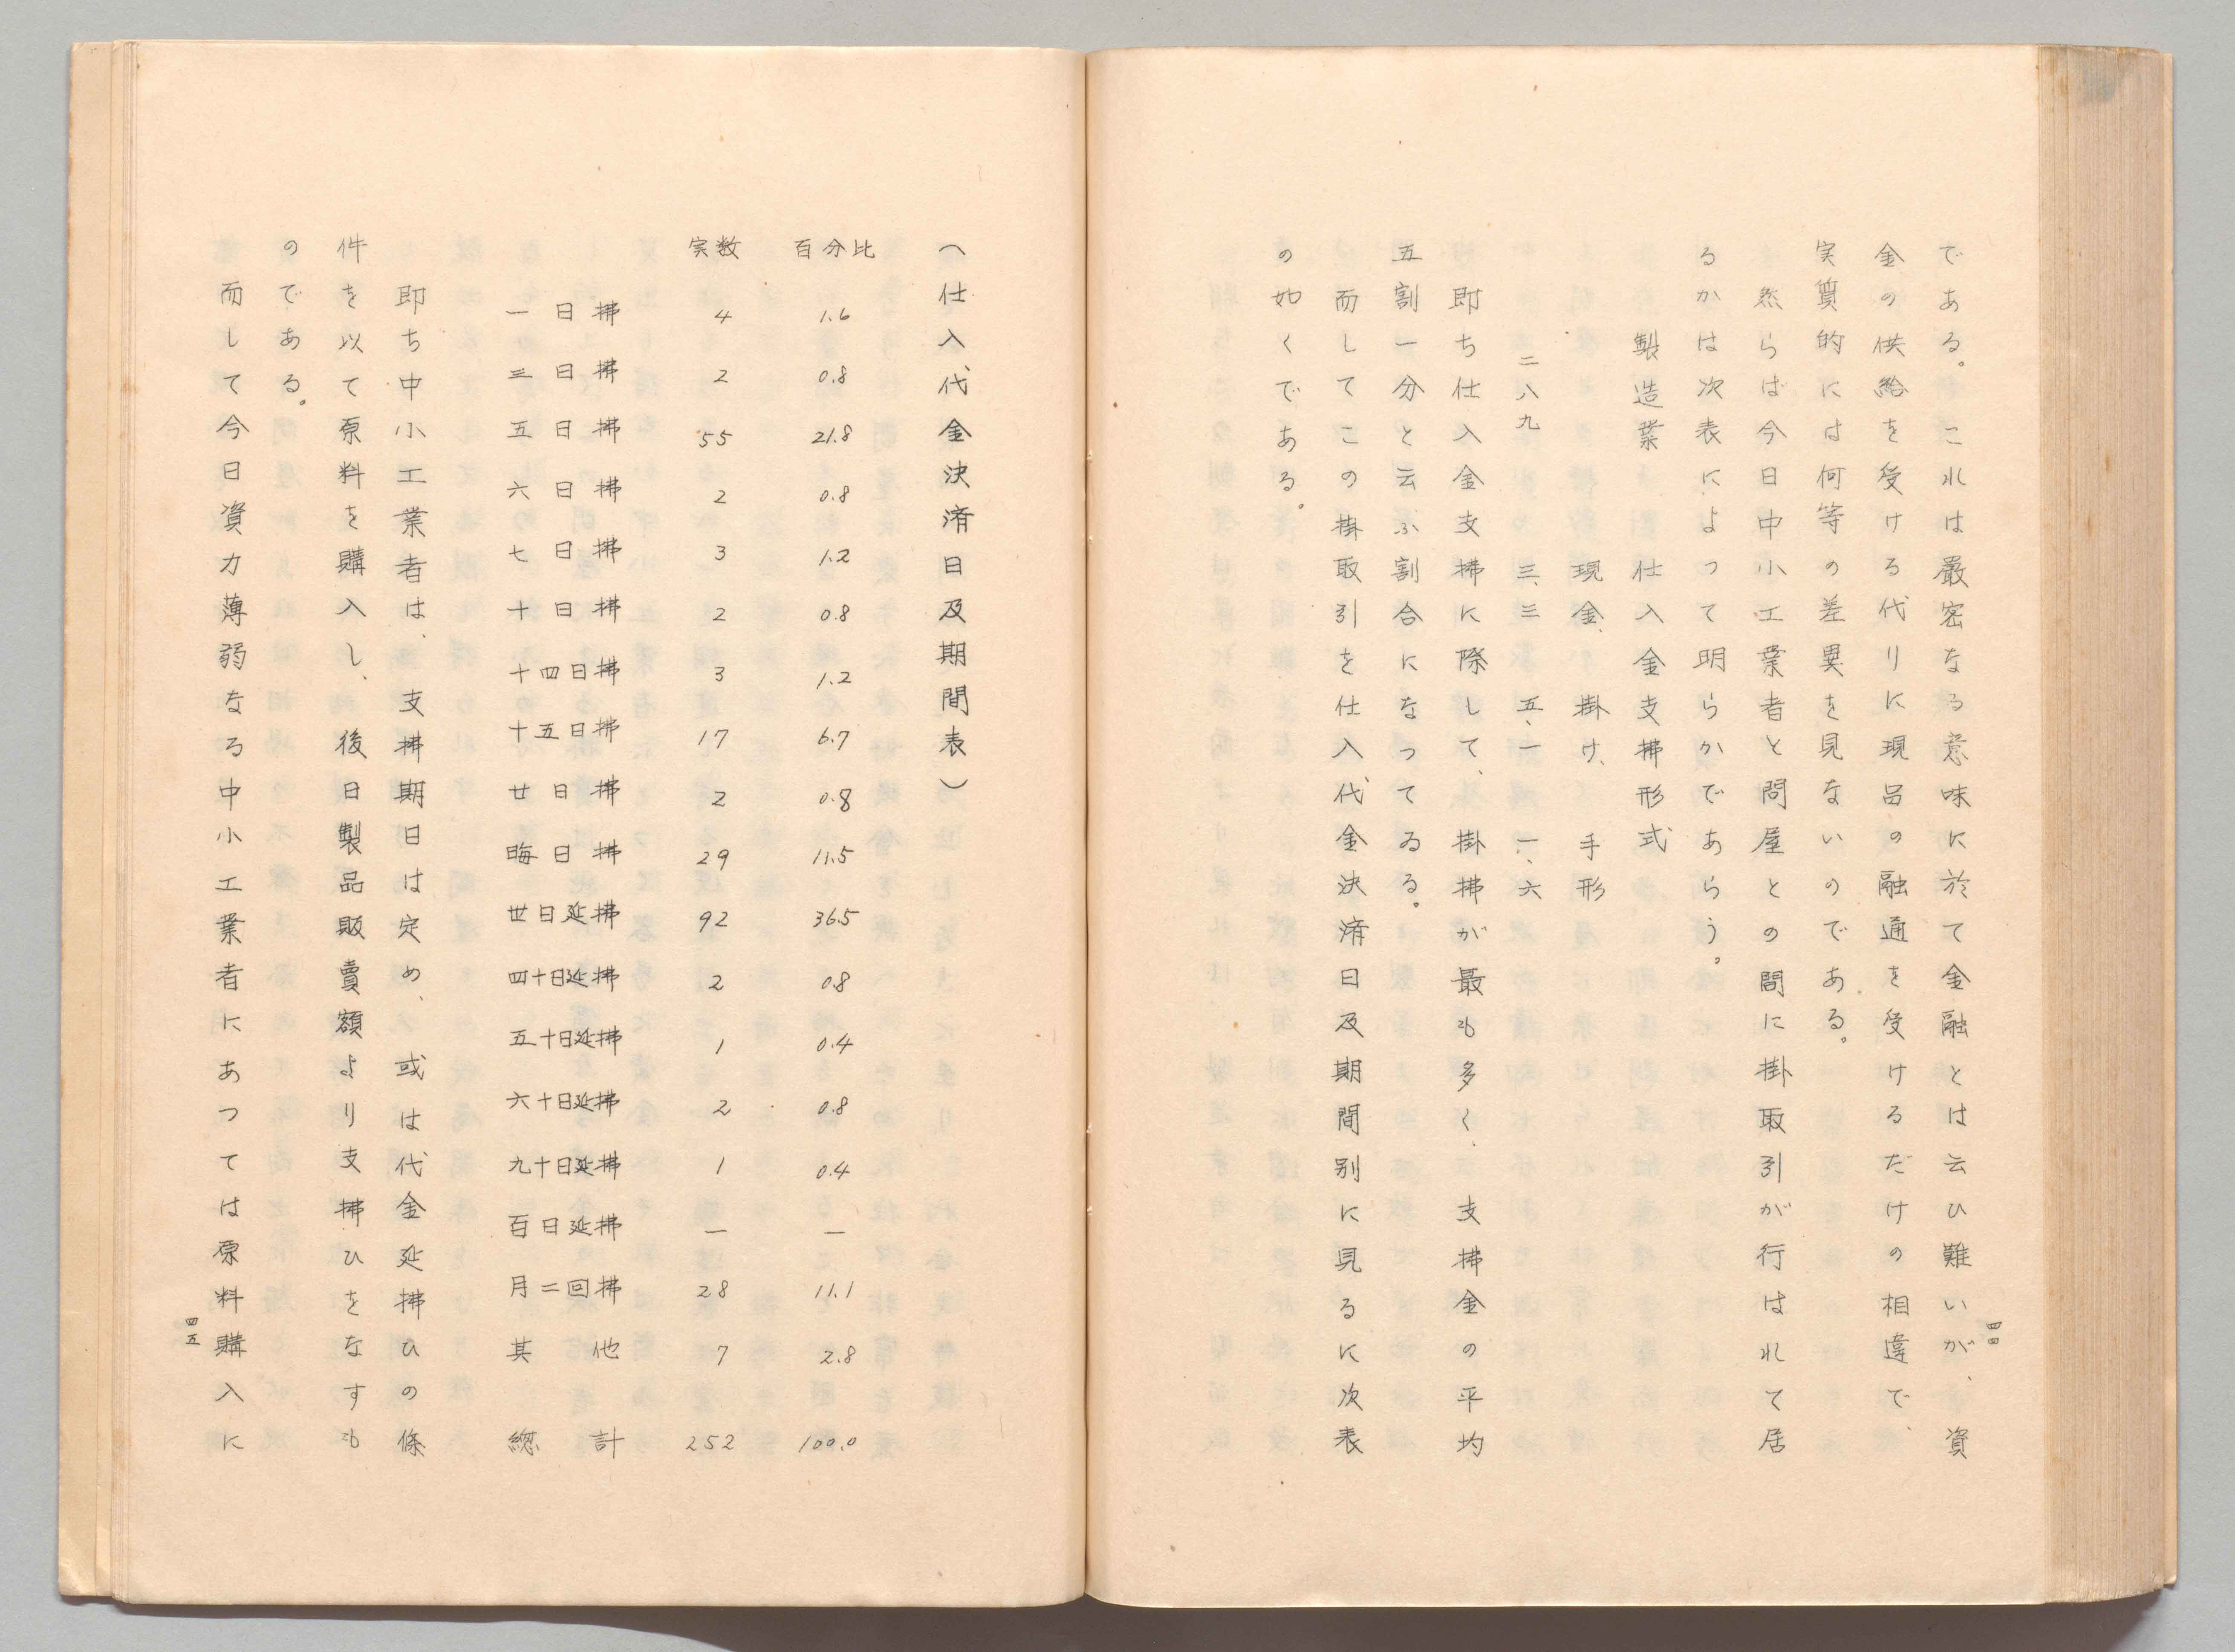 である。これは嚴密なる意味に於て金融とは云ひ難いが、資
金の供給を受ける代りに現品の融通を受けるだけの相違で、
実質的には何等の差異を見ないのである。
然らば今日中小工業者と問屋との間に掛取引が行はれて居
るかは次表によつて明らかであらう。
製造業 仕入金支拂形式
現金、 掛け、 手形
二八九 三、三 五、一 一、六
即ち仕入金支拂に際して、掛拂が最も多く、支拂金の平均
五割一分と云ふ割合になつてゐる。
而してこの掛取引を仕入代金決済日及期間別に見るに次表
の如くである。
四四
(仕入代金決済日及期間表)
実数 百分比
一日拂 4 1.6
三日拂 2 0.8
五日拂 55 21.8
六日拂 2 0.8
七日拂 3 1.2
十日拂 2 0.8
十四日拂 3 1.2
十五日拂 17 6.7
廿日拂 2 0.8
晦日拂 29 11.5
丗日延拂 92 36.5
四十日延拂 2 0.8
五十日延拂 1 0.4
六十日延拂 2 0.8
九十日延拂 1 0.4
百日延拂 — —
月二回拂 28 11.1
其他 7 2.8
総計 252 100.0
即ち中小工業者は、支拂期日は定め、或は代金延拂ひの條
件を以て原料を購入し、後日製品販賣額より支拂ひをなすも
のである。
而して今日資力薄弱なる中小工業者にあつては原料購入に
四五